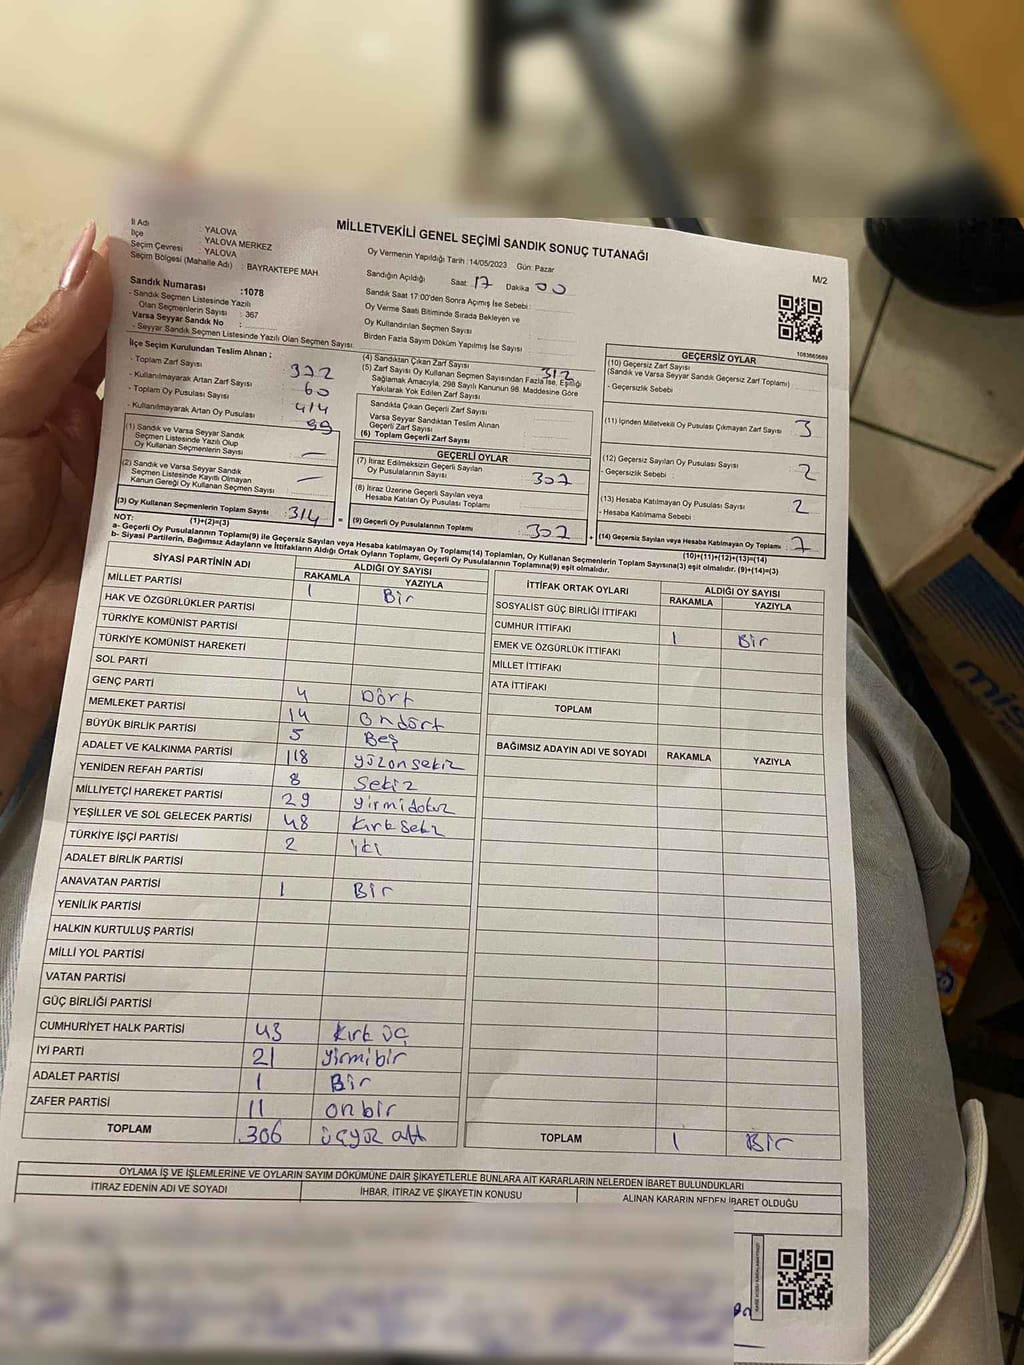 MİLLETVEKİLİ GENEL SEÇİMİ SANDIK SONUÇ TUTANAĞI
M/2
İl Adı : YALOVA
İlçe : YALOVA MERKEZ
Seçim Çevresi : YALOVA
Seçim Bölgesi (Mahalle Adı) : BAYRAKTEPE MAH
Sandık Numarası :1078
- Sandık Seçmen Listesinde Yazılı
Olan Seçmenlerin Sayısı : 367
Varsa Seyyar Sandık No :
- Seyyar Sandık Seçmen Listesinde Yazılı Olan Seçmen Sayısı:
Oy Vermenin Yapıldığı Tarih : 14/05/2023 Gün: Pazar
Sandığın Açıldığı Saat 17 Dakika 00
Sandık Saat 17:00'den Sonra Açımış İse Sebebi :
Oy Verme Saati Bitiminde Sırada Bekleyen ve
Oy Kullandırılan Seçmen Sayısı
Birden Fazla Sayım Döküm Yapılmış İse Sayısı :
1083665689
İlçe Seçim Kurulundan Teslim Alınan ;
- Toplam Zarf Sayısı 372
- Kullanılmayarak Artan Zarf Sayısı : 60
- Toplam Oy Pusulası Sayısı 414
- Kullanılmayarak Artan Oy Pusulası : 99
(1) Sandık ve Varsa Seyyar Sandık
Seçmen Listesinde Yazılı Olup
Oy Kullanan Seçmenlerin Sayısı —
(2) Sandık ve Varsa Seyyar Sandık
Seçmen Listesinde Kayıtlı Olmayan
Kanun Gereği Oy Kullanan Seçmen Sayısı —
(3) Oy Kullanan Seçmenlerin Toplam Sayısı : 314
(1)+(2)=(3)
(4) Sandıktan Çıkan Zarf Sayısı 312
(5) Zarf Sayısı Oy Kullanan Seçmen Sayısından Fazla İse, Eşitliği
Sağlamak Amacıyla, 298 Sayılı Kanunun 98. Maddesine Göre
Yakılarak Yok Edilen Zarf Sayısı
Sandıkta Çıkan Geçerli Zarf Sayısı
Varsa Seyyar Sandıktan Teslim Alınan
Geçerli Zarf Sayısı
(6) Toplam Geçerli Zarf Sayısı
GEÇERLİ OYLAR
(7) İtiraz Edilmeksizin Geçerli Sayılan
Oy Pusulalarının Sayısı 307
(8) İtiraz Üzerine Geçerli Sayılan veya
Hesaba Katılan Oy Pusulası Toplamı
= (9) Geçerli Oy Pusulalarının Toplamı 307
GEÇERSİZ OYLAR
(10) Geçersiz Zarf Sayısı
(Sandık ve Varsa Seyyar Sandık Geçersiz Zarf Toplamı)
- Geçersizlik Sebebi
(11) İçinden Milletvekili Oy Pusulası Çıkmayan Zarf Sayısı 3
(12) Geçersiz Sayılan Oy Pusulası Sayısı 2
- Geçersizlik Sebebi
(13) Hesaba Katılmayan Oy Pusulası Sayısı 2
- Hesaba Katılmama Sebebi :
+ (14) Geçersiz Sayılan veya Hesaba Katılmayan Oy Toplamı 7
(10)+(11)+(12)+(13)=(14)
NOT:
a- Geçerli Oy Pusulalarının Toplamı(9) ile Geçersiz Sayılan veya Hesaba katılmayan Oy Toplamı(14) Toplamları, Oy Kullanan Seçmenlerin Toplam Sayısına(3) eşit olmalıdır. (9)+(14)=(3)
b- Siyasi Partilerin, Bağımsız Adayların ve İttifakların Aldığı Ortak Oyların Toplamı, Geçerli Oy Pusulalarının Toplamına(9) eşit olmalıdır.
SİYASİ PARTİNİN ADI ALDIĞI OY SAYISI
RAKAMLA YAZIYLA
MİLLET PARTİSİ 1 Bir
HAK VE ÖZGÜRLÜKLER PARTİSİ
TÜRKİYE KOMÜNİST PARTİSİ
TÜRKİYE KOMÜNİST HAREKETİ
SOL PARTİ
GENÇ PARTİ 4 Dört
MEMLEKET PARTİSİ 14 Ondört
BÜYÜK BİRLİK PARTİSİ 5 Beş
ADALET VE KALKINMA PARTİSİ 118 yüzonsekiz
YENİDEN REFAH PARTİSİ 8 Sekiz
MİLLİYETÇİ HAREKET PARTİSİ 29 yirmidokuz
YEŞİLLER VE SOL GELECEK PARTİSİ 48 Kırksekiz
TÜRKİYE İŞÇİ PARTİSİ 2 iki
ADALET BİRLİK PARTİSİ
ANAVATAN PARTİSİ 1 Bir
YENİLİK PARTİSİ
HALKIN KURTULUŞ PARTİSİ
MİLLİ YOL PARTİSİ
VATAN PARTİSİ
GÜÇ BİRLİĞİ PARTİSİ
CUMHURİYET HALK PARTİSİ 43 Kırk üç
İYİ PARTİ 21 yirmibir
ADALET PARTİSİ 1 Bir
ZAFER PARTİSİ 11 onbir
TOPLAM 306 üçyüz altı
İTTİFAK ORTAK OYLARI ALDIĞI OY SAYISI
RAKAMLA YAZIYLA
SOSYALİST GÜÇ BİRLİĞİ İTTİFAKI
CUMHUR İTTİFAKI 1 Bir
EMEK VE ÖZGÜRLÜK İTTİFAKI
MİLLET İTTİFAKI
ATA İTTİFAKI
TOPLAM
BAĞIMSIZ ADAYIN ADI VE SOYADI RAKAMLA YAZIYLA
TOPLAM 1 Bir
OYLAMA İŞ VE İŞLEMLERİNE VE OYLARIN SAYIM DÖKÜMÜNE DAİR ŞİKAYETLERLE BUNLARA AİT KARARLARIN NELERDEN İBARET BULUNDUKLARI
İTİRAZ EDENİN ADI VE SOYADI İHBAR, İTİRAZ VE ŞİKAYETİN KONUSU ALINAN KARARIN NEDEN İBARET OLDUĞU